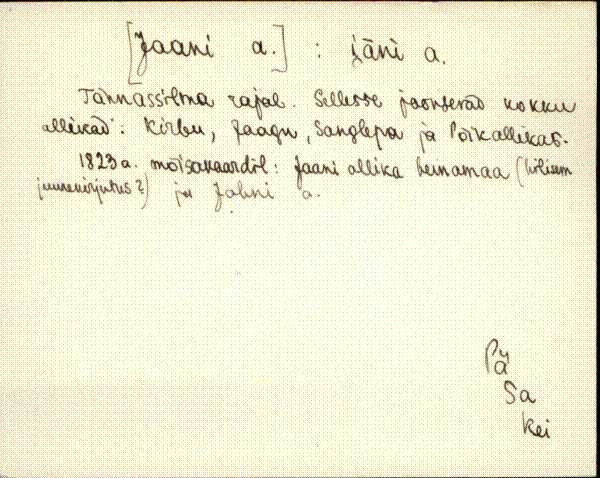 [Jaani a.] : jāni a.
Tännassilma rajal. Sellesse jooksevad kokku
allikad: Kirbu, Jaagu, Sanglepa ja Poikallikas.
1823 a. mõisakaardil: Jaani allika heinamaa (hilisem
juurekirjutus?) ja Jahni a.
Pä
Sa
Kei